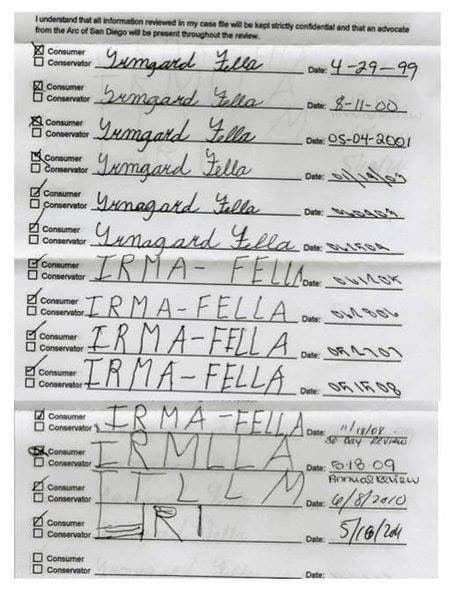 I understand that all information reviewed in my case file will be kept strictly confidential and that an advocate
from the Arc of San Diego will be present throughout the review.
Consumer
Conservator Irmgard Fella Date: 4-29-99
Consumer
Conservator Irmgard Fella Date: 8-11-00
Consumer
Conservator Irmgard Fella Date: 05-04-2001
Consumer
Conservator Irmgard Fella Date:
Consumer
Conservator Irmagard Fella Date:
Consumer
Conservator Irmagard Fella Date:
Consumer
Conservator IRMA- FELLA Date:
Consumer
Conservator IRMA-FELLA Date:
Consumer
Conservator IRMA-FELLA Date:
Consumer
Conservator IRMA-FELLA Date:
Consumer
Conservator IRMA-FELLA Date: 11/18/08
30 Day Review
Consumer
Conservator IRMLLA Date: 5-18 09
Annual Review
Consumer
Conservator ITLLM Date: 6/8/2010
Consumer
Conservator Date:
Consumer
Conservator Date: